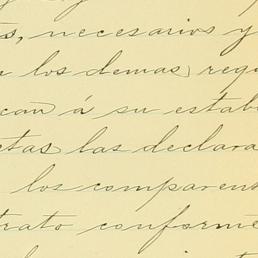 s, necesarios y
los demas requ
can á su estab
ctas las declara
los comparen
trato conforme